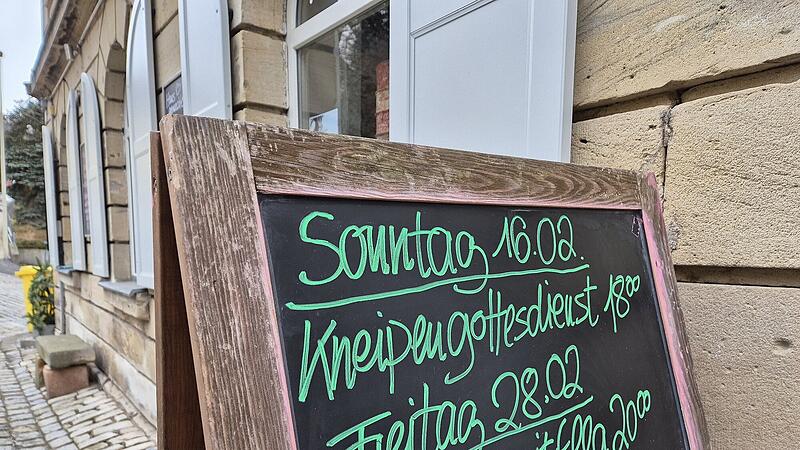 Sonntag 16.02.
Kneipengottesdienst 18⁰⁰
Freitag 28.02
mit Ella 20⁰⁰